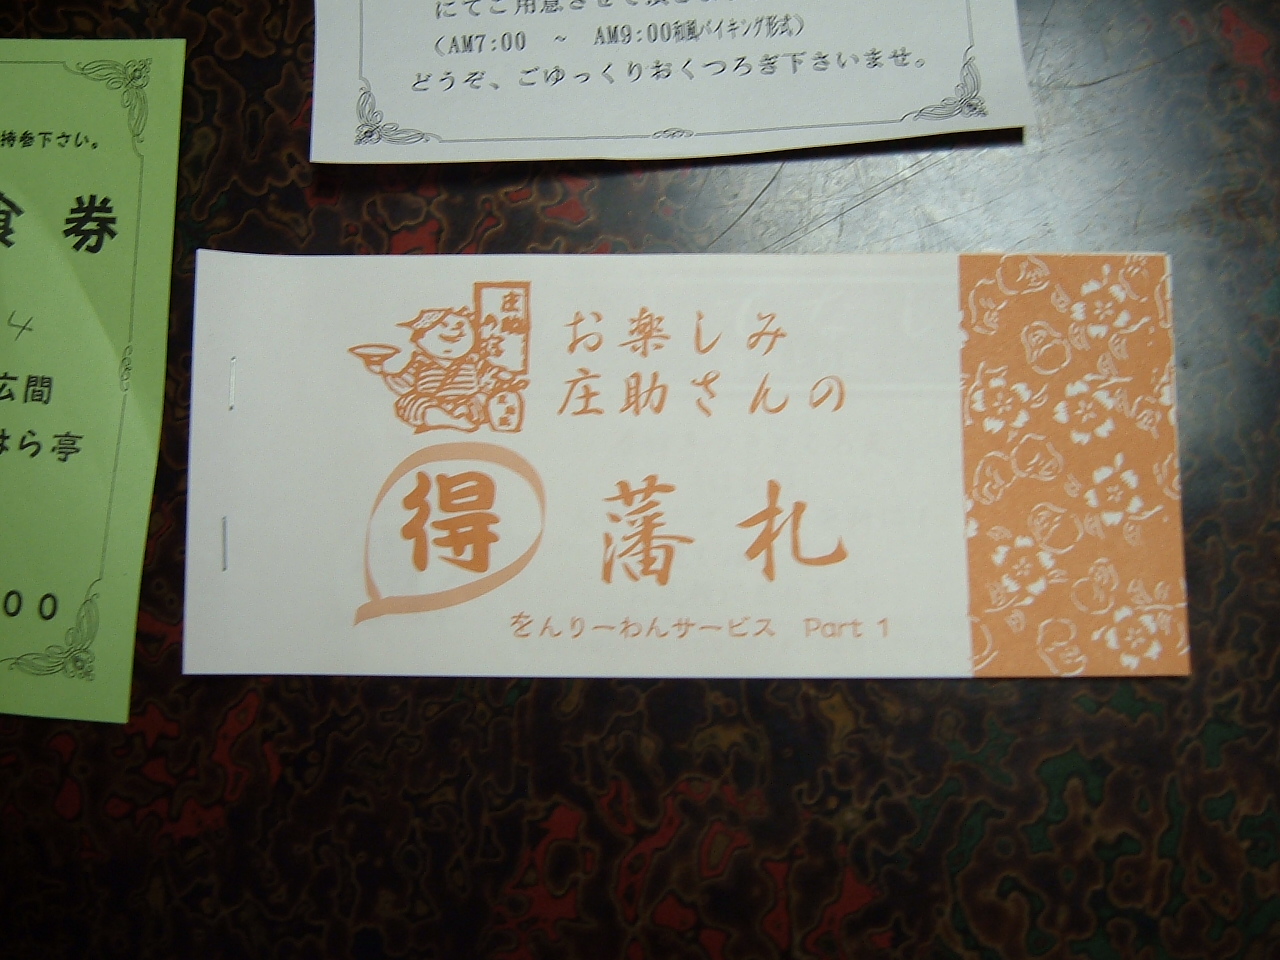 にてご用意させて頂き
(AM7:00 ~ AM9:00和風バイキング形式)
どうぞ、ごゆっくりおくつろぎ下さいませ。
持参下さい。
食 券
4
広間
はら亭
00
庄助
お楽しみ
庄助さんの
得 藩 札
をんりーわんサービス Part 1